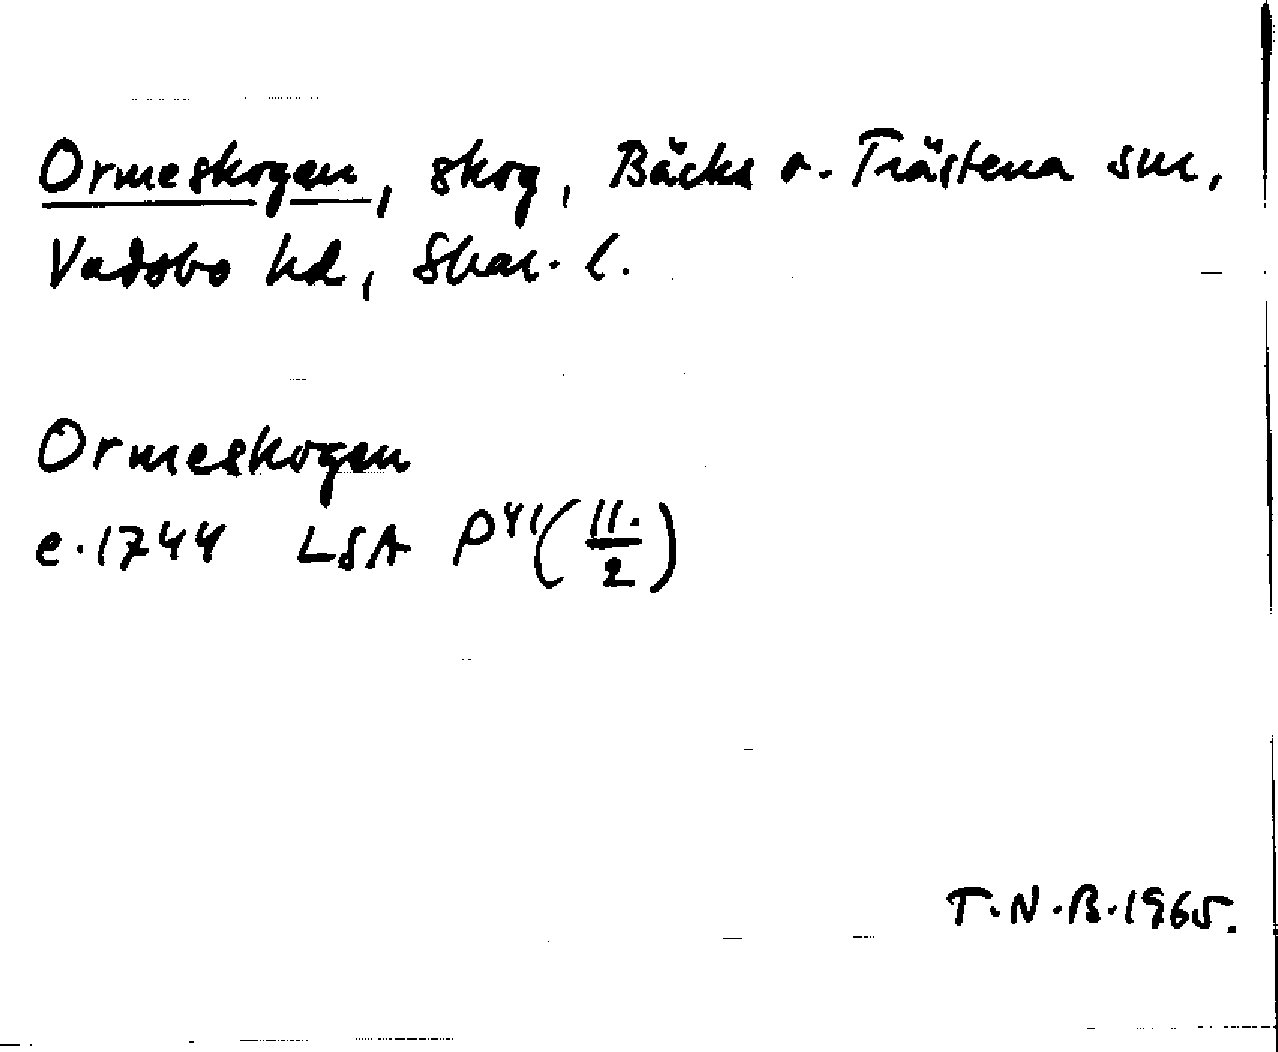 Ormeskogen, skog, Bäcks o. Trästena snr,
Vadsbo hd, Skar. l.
Ormeskogen
e. 1744 LSA P⁴¹ (11./2)
T.N.B. 1965.